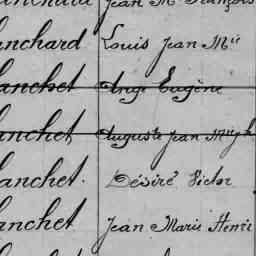 Jean M. François
anchard Louis Jean Mie
lanchet Aug. Eugène
anchet Auguste Jean
lanchet. Désiré Victor
lanchet Jean Marie Henri